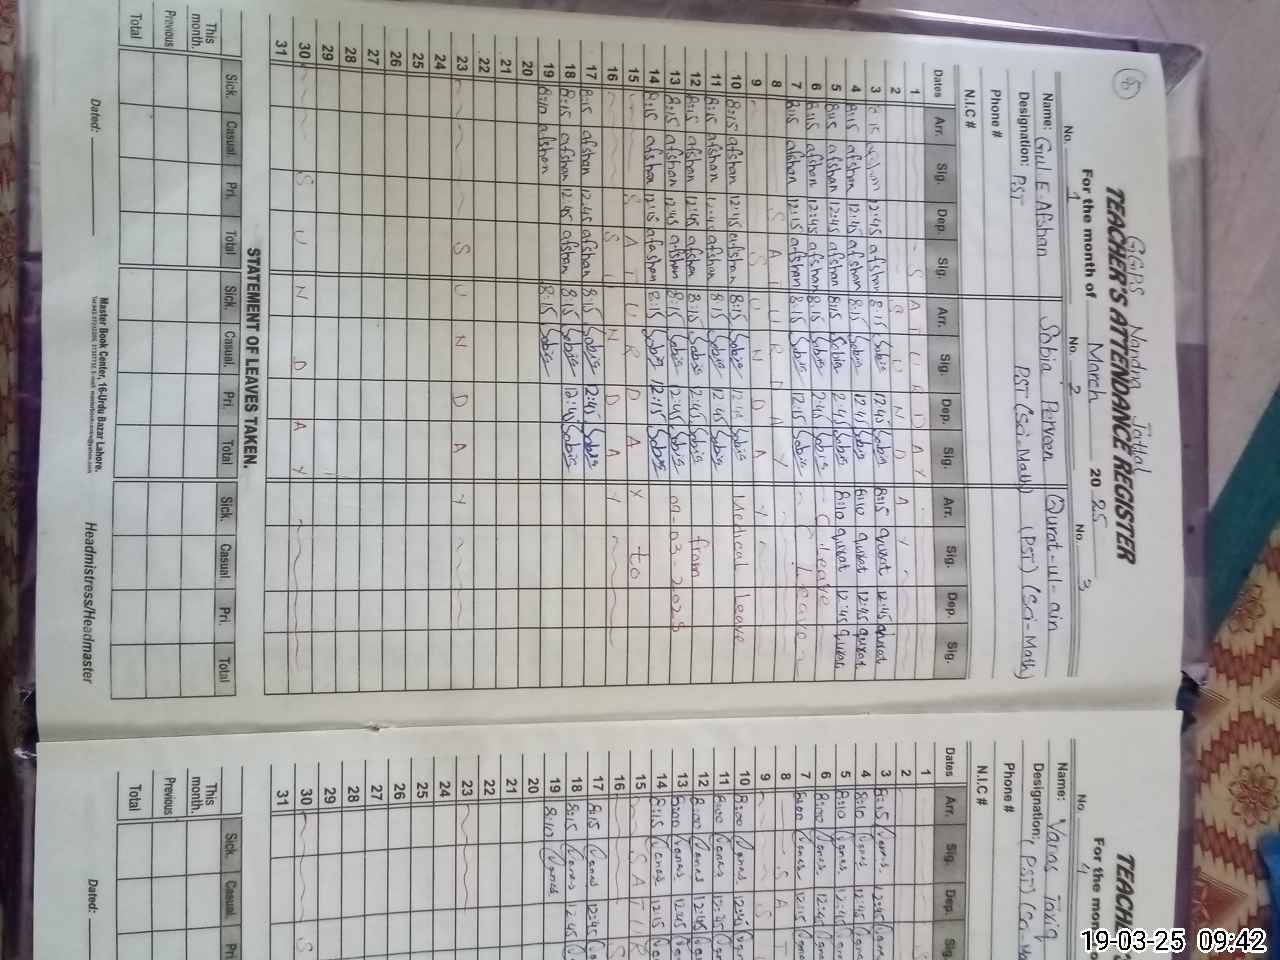 5
GGPS Nandna Jattal
TEACHER'S ATTENDANCE REGISTER
For the month of March 2025
No. 1 No. 2 No. 3
Name: Gul E Afshan Sobia Perveen Qurat-ul-ain
Designation: PST PST (Sci-Math) (PST) (Sci-Math)
Phone #
N.I.C #
Dates Arr. Sig. Dep. Sig. Arr. Sig. Dep. Sig. Arr. Sig. Dep. Sig.
1 S A T U R D A Y
2 S U N D A Y
3 8:15 afshan 12:45 afshan 8:15 Sobia 12:45 Sobia 8:15 qurat 12:45 qurat
4 8:15 afshan 12:45 afshan 8:15 Sobia 12:45 Sobia 8:10 qurat 12:45 qurat
5 8:15 afshan 12:45 afshan 8:15 Sobia 12:45 Sobia 8:10 qurat 12:45 qurat
6 8:15 afshan 12:45 afshan 8:15 Sobia 12:45 Sobia Leave
7 8:15 afshan 12:15 afshan 8:15 Sobia 12:15 Sobia Leave
8 S A T U R D A Y
9 S U N D A Y
10 8:15 afshan 12:45 afshan 8:15 Sobia 12:45 Sobia Medical leave
11 8:15 afshan 12:45 afshan 8:15 Sobia 12:45 Sobia
12 8:15 afshan 12:45 afshan 8:15 Sobia 12:45 Sobia from
13 8:15 afshan 12:45 afshan 8:15 Sobia 12:45 Sobia 09-03-2025
14 8:15 afshan 12:15 afshan 8:15 Sobia 12:15 Sobia
15 S A T U R D A Y to
16 S U N D A Y
17 8:15 afshan 12:45 afshan 8:15 Sobia 12:45 Sobia
18 8:15 afshan 12:45 afshan 8:15 Sobia 12:45 Sobia
19 8:10 afshan 8:15 Sobia
20
21
22
23 S U N D A Y
24
25
26
27
28
29
30 S U N D A Y
31
STATEMENT OF LEAVES TAKEN.
Sick. Casual. Pri. Total Sick. Casual. Pri. Total Sick. Casual Pri. Total
This month.
Previous
Total
Dated: Master Book Center, 16-Urdu Bazar Lahore. Headmistress/Headmaster
TEACH
For the mon
No. 4
Name: Tariq
Designation: (PST)
Phone #
N.I.C #
Dates Arr. Sig. Dep. Sig.
1
2
3 8:15 12:45
4 8:10 12:45
5 8:10 12:45
6 8:00 12:45
7 8:00 12:15
8 S A T
9 S
10 8:00 12:45
11 8:00 12:45
12 8:00 12:45
13 8:00 12:45
14 8:15 12:15
15 S A T U R
16 S
17 8:15 12:45
18 8:15 12:45
19 8:10
20
21
22
23
24
25
26
27
28
29
30 S
31
Sick. Casual. Pri
This month.
Previous
Total
Dated:
19-03-25 09:42